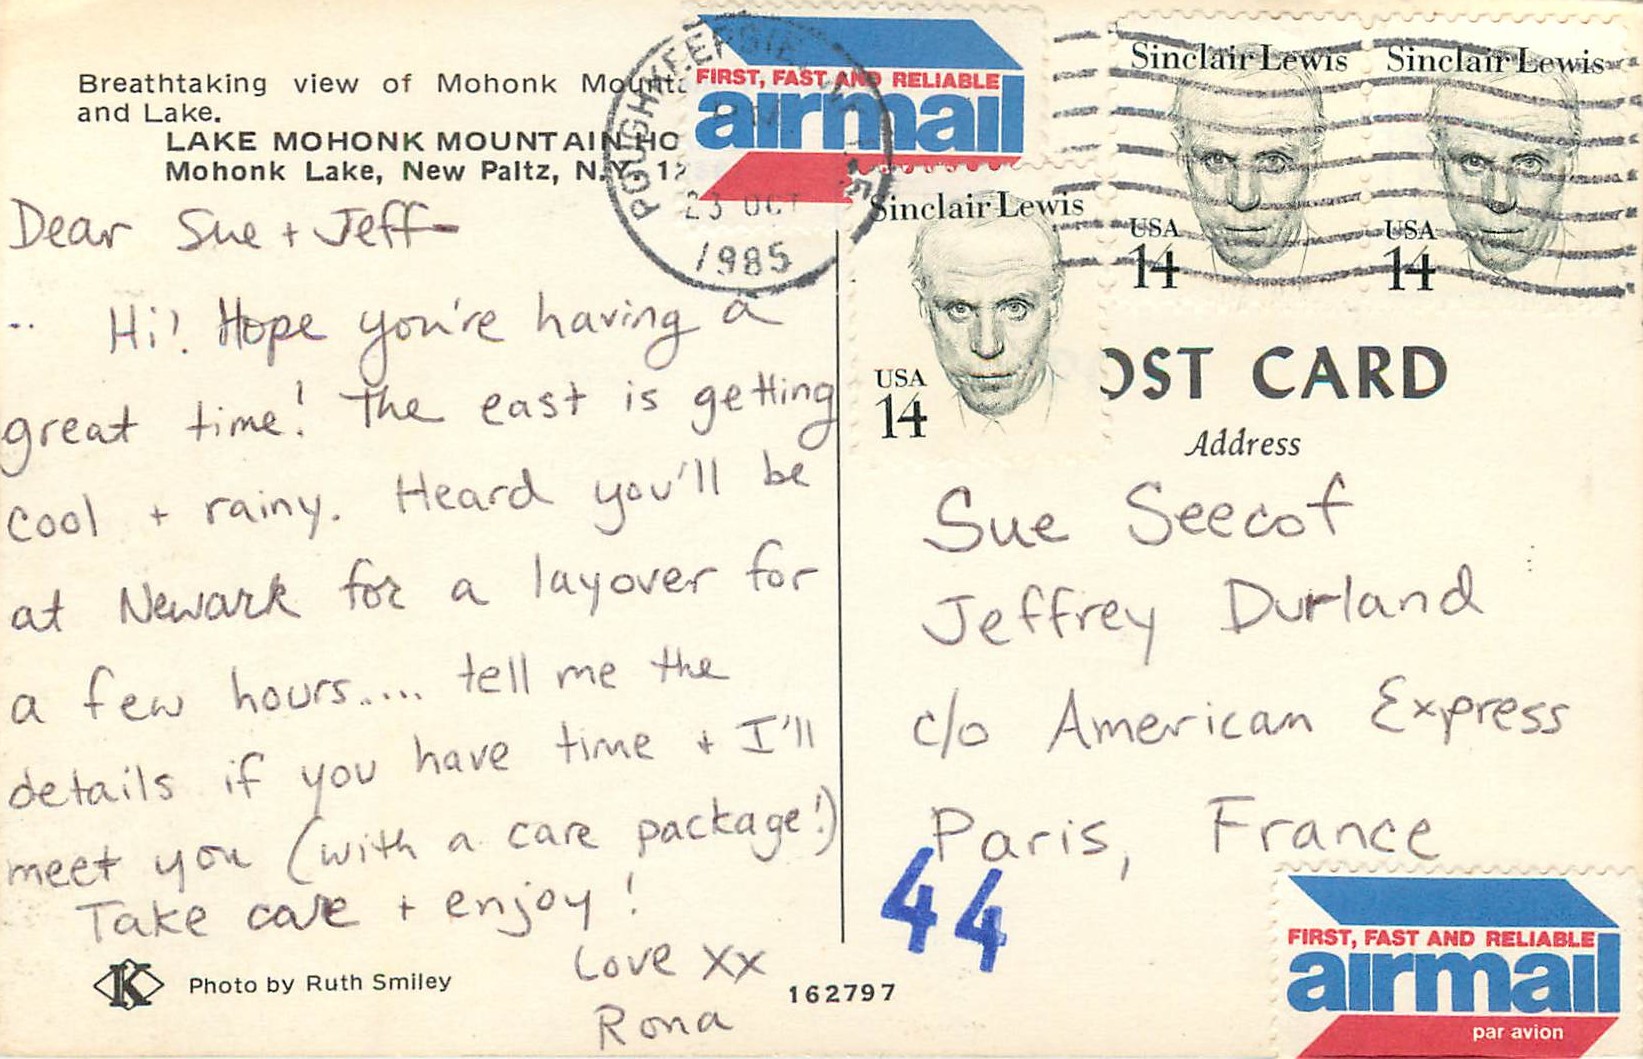 Breathtaking view of Mohonk
and Lake.
LAKE MOHONK MOUNTAIN HO
Mohonk Lake, New Paltz, N.Y. 12
Dear Sue + Jeff-
Hi! Hope you're having a
great time! The east is getting
cool + rainy. Heard you'll be
at Newark for a layover for
a few hours.... tell me the
details if you have time + I'll
meet you (with a care package!)
Take care + enjoy!
Love XX
Rona
K
Photo by Ruth Smiley
162797
POUGHKEEPSIE
23 OCT
1985
FIRST, FAST AND RELIABLE
airmail
Sinclair Lewis
USA
14
Sinclair Lewis
USA
14
Sinclair Lewis
USA
14
OST CARD
Address
Sue Seecof
Jeffrey Durland
c/o American Express
Paris, France
44
FIRST, FAST AND RELIABLE
airmail
par avion